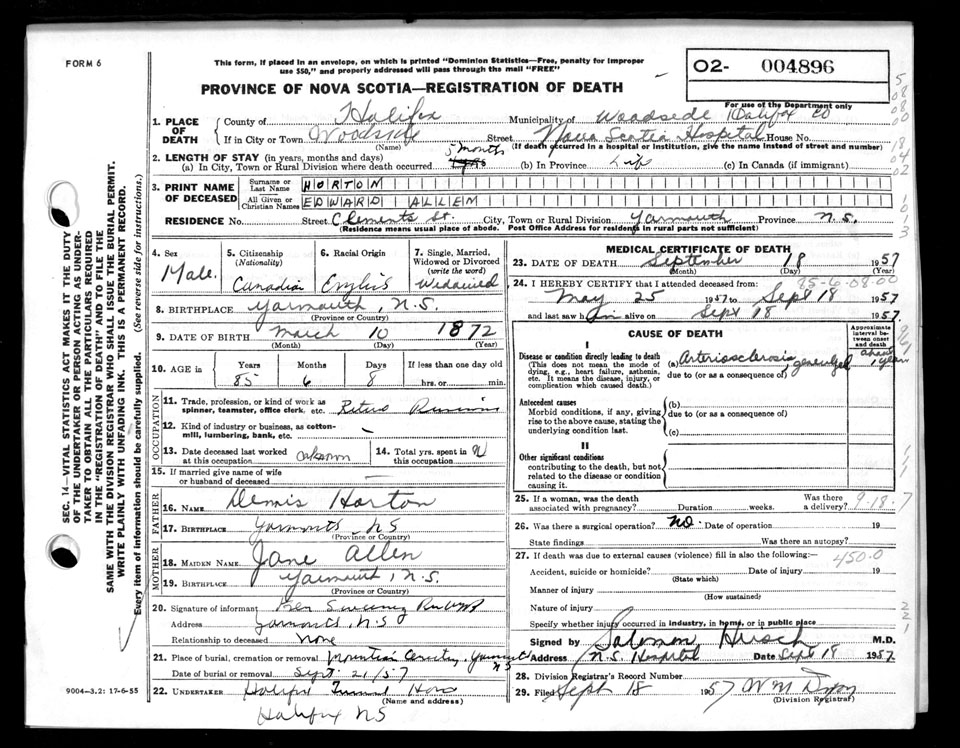 FORM 6
This form, if placed in an envelope, on which is printed "Dominion Statistics—Free, penalty for improper
use $50," and properly addressed will pass through the mail "FREE"
O2- 004896
For use of the Department only
PROVINCE OF NOVA SCOTIA—REGISTRATION OF DEATH
1. PLACE OF DEATH
County of Halifax Municipality of Woodside Halifax Co
If in City or Town Woodside Street Nova Scotia Hospital House No.
(Name) (If death occurred in a hospital or institution, give the name instead of street and number)
2. LENGTH OF STAY (in years, months and days)
(a) In City, Town or Rural Division where death occurred 5 months (b) In Province Life (c) In Canada (if immigrant)
3. PRINT NAME OF DECEASED
Surname or Last Name HORTON
All Given or Christian Names EDWARD ALLEN
RESIDENCE No. Street Clements St. City, Town or Rural Division Yarmouth Province N.S.
(Residence means usual place of abode. Post Office Address for residents in rural parts not sufficient)
4. Sex Male.
5. Citizenship (Nationality) Canadian
6. Racial Origin English
7. Single, Married, Widowed or Divorced (write the word) Widowed
8. BIRTHPLACE Yarmouth N.S.
(Province or Country)
9. DATE OF BIRTH March 10 1872
(Month) (Day) (Year)
10. AGE in Years Months Days If less than one day old
85 6 8 hrs. or min.
OCCUPATION
11. Trade, profession, or kind of work as
spinner, teamster, office clerk, etc.
12. Kind of industry or business, as cotton-
mill, lumbering, bank, etc. –
13. Date deceased last worked
at this occupation Unknown
14. Total yrs. spent in
this occupation
15. If married give name of wife
or husband of deceased —
FATHER
16. NAME Dennis Horton
17. BIRTHPLACE Yarmouth NS
(Province or Country)
MOTHER
18. MAIDEN NAME Jane Allen
19. BIRTHPLACE Yarmouth, N.S.
(Province or Country)
20. Signature of informant Ken Sweeny
Address Yarmouth, N.S
Relationship to deceased None
21. Place of burial, cremation or removal Mountain Cemetery, Yarmouth NS
Date of burial or removal Sept. 21/57
22. UNDERTAKER Halifax Funeral Home
(Name and address)
Halifax NS
MEDICAL CERTIFICATE OF DEATH
23. DATE OF DEATH September 18 1957
(Month) (Day) (Year)
85-6-08-00
24. I HEREBY CERTIFY that I attended deceased from:
May 25 1957 to Sept 18 1957
and last saw him alive on Sept 18 1957.
CAUSE OF DEATH
Approximate interval between onset and death
I
Disease or condition directly leading to death
(This does not mean the mode of
dying, e.g., heart failure, asthenia,
etc. It means the disease, injury, or
complication which caused death.)
(a) Arteriosclerosis, generalized about 1 year
due to (or as a consequence of)
Antecedent causes
Morbid conditions, if any, giving
rise to the above cause, stating the
underlying condition last.
(b)
due to (or as a consequence of)
(c)
II
Other significant conditions
contributing to the death, but not
related to the disease or condition
causing it.
25. If a woman, was the death
associated with pregnancy? Duration weeks. Was there a delivery?
9-18-7
26. Was there a surgical operation? No. Date of operation 19
State findings Was there an autopsy?
27. If death was due to external causes (violence) fill in also the following:—
450.0
Accident, suicide or homicide? Date of injury 19
(State which)
Manner of injury
(How sustained)
Nature of injury
Specify whether injury occurred in industry, in home, or in public place
Signed by Solomon Hirsch M.D.
Address N.S. Hospital Date Sept 18 1957.
28. Division Registrar's Record Number
29. Filed Sept 18 1957
(Division Registrar)
SEC. 14—VITAL STATISTICS ACT MAKES IT THE DUTY
OF THE UNDERTAKER OR PERSON ACTING AS UNDER-
TAKER TO OBTAIN ALL THE PARTICULARS REQUIRED
IN THE "REGISTRATION OF DEATH" AND TO FILE THE
SAME WITH THE DIVISION REGISTRAR WHO SHALL ISSUE THE BURIAL PERMIT.
WRITE PLAINLY WITH UNFADING INK. THIS IS A PERMANENT RECORD.
Every item of information should be carefully supplied. (See reverse side for instructions.)
9004-3.2: 17-6-55